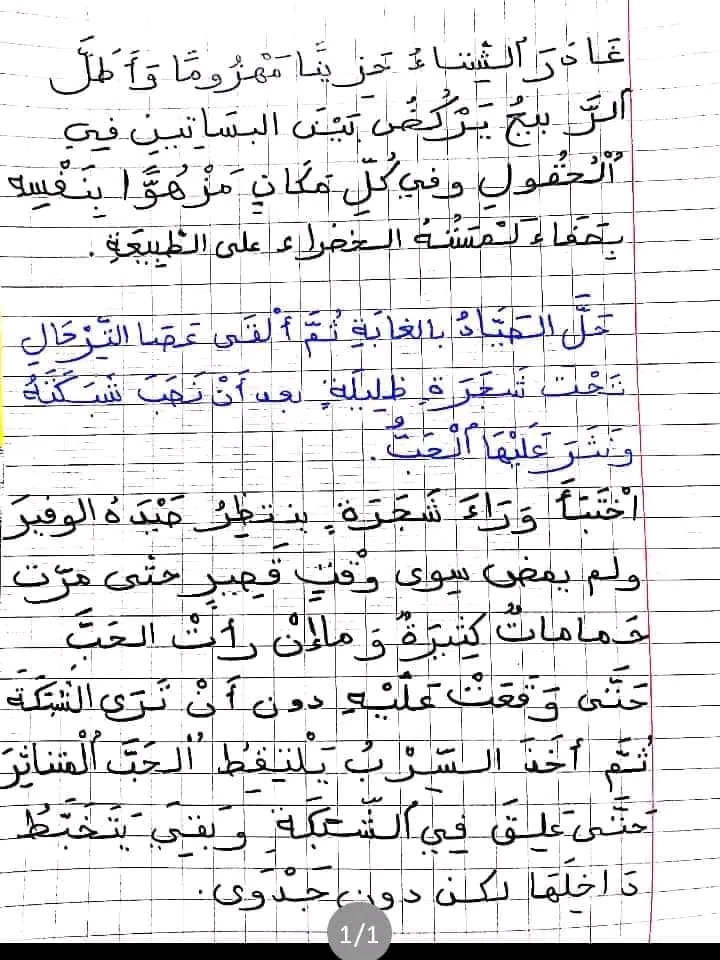 غَادَرَ ٱلشِّتَاءُ حَزِينًا مَهْزُومًا وَأَطَلَّ
ٱلرَّبِيعُ يَرْكُضُ بَيْنَ البسَاتِينِ فِي
ٱلْحُقُولِ وفي كُلِّ مَكَانٍ مَزْهُوًّا بِنَفْسِهِ
بِصَفَاءَ لَمْسَتُهُ الخضراء على الطَّبِيعَةِ.
حَلَّ الصَيَّادُ بالغابَةِ ثُمَّ أَلْقَى عَصَا التِّرْحَالِ
تَحْتَ شَجَرَةٍ ظلِيلَةٍ بعد أَنْ نَصَبَ شَبَكَتَهُ
وَنَثَرَ عَلَيْهَا ٱلْحَبُّ.
اخْتَبَأَ وَرَاءَ شَجَرَةٍ ينتظِرُ صَيْدَهُ الوفيرَ
ولم يمض سِوى وقْتٍ قَصِيرٍ حتّى مرّت
حَماماتٌ كَثِيرَةٌ وَماإنْ رأتْ الحَبَّ
حَتَّى وَقَعَتْ عَلَيْهِ دون أَنْ تَرَى الشّبَكَة
ثُمَّ أخَذَ السِّرْبُ يَلْتَقِطُ ٱلحَبَّ ٱلْمُتناثِرَ
حَتَّى عَلِقَ فِي ٱلشَّبَكَةِ وَبَقِيَ يَتَخَبَّطُ
دَاخِلَهَا لكن دون جَدْوَى.
1/1